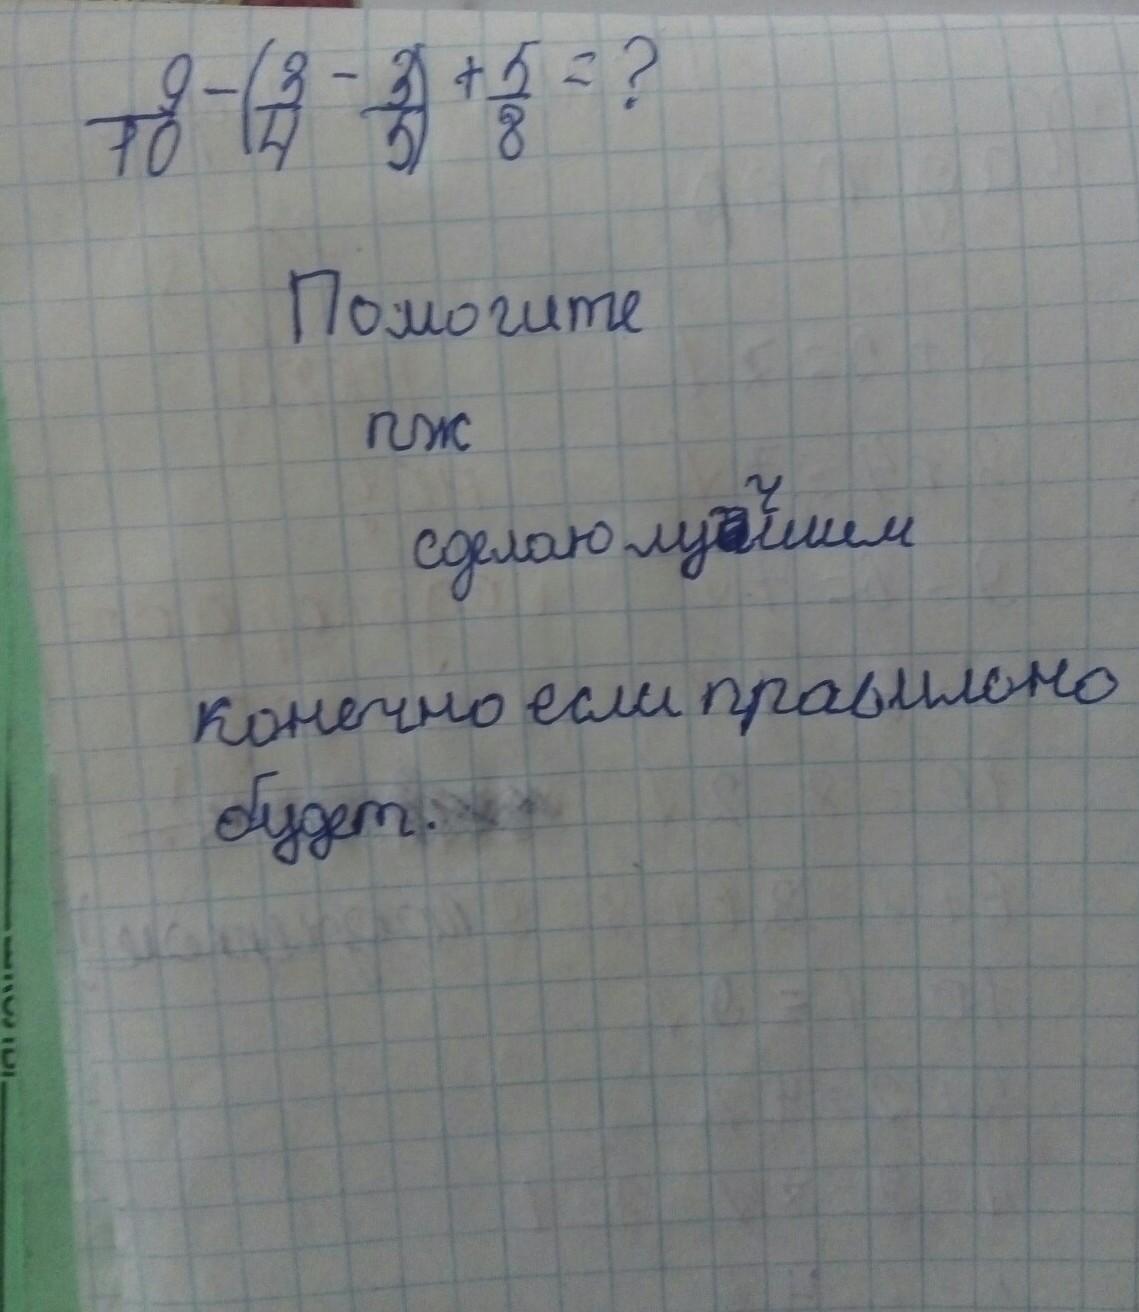 9/10 - (3/4 - 3/5) + 5/8 = ?
Помогите
пж
сделаю лучшим
конечно если правильно
будет.